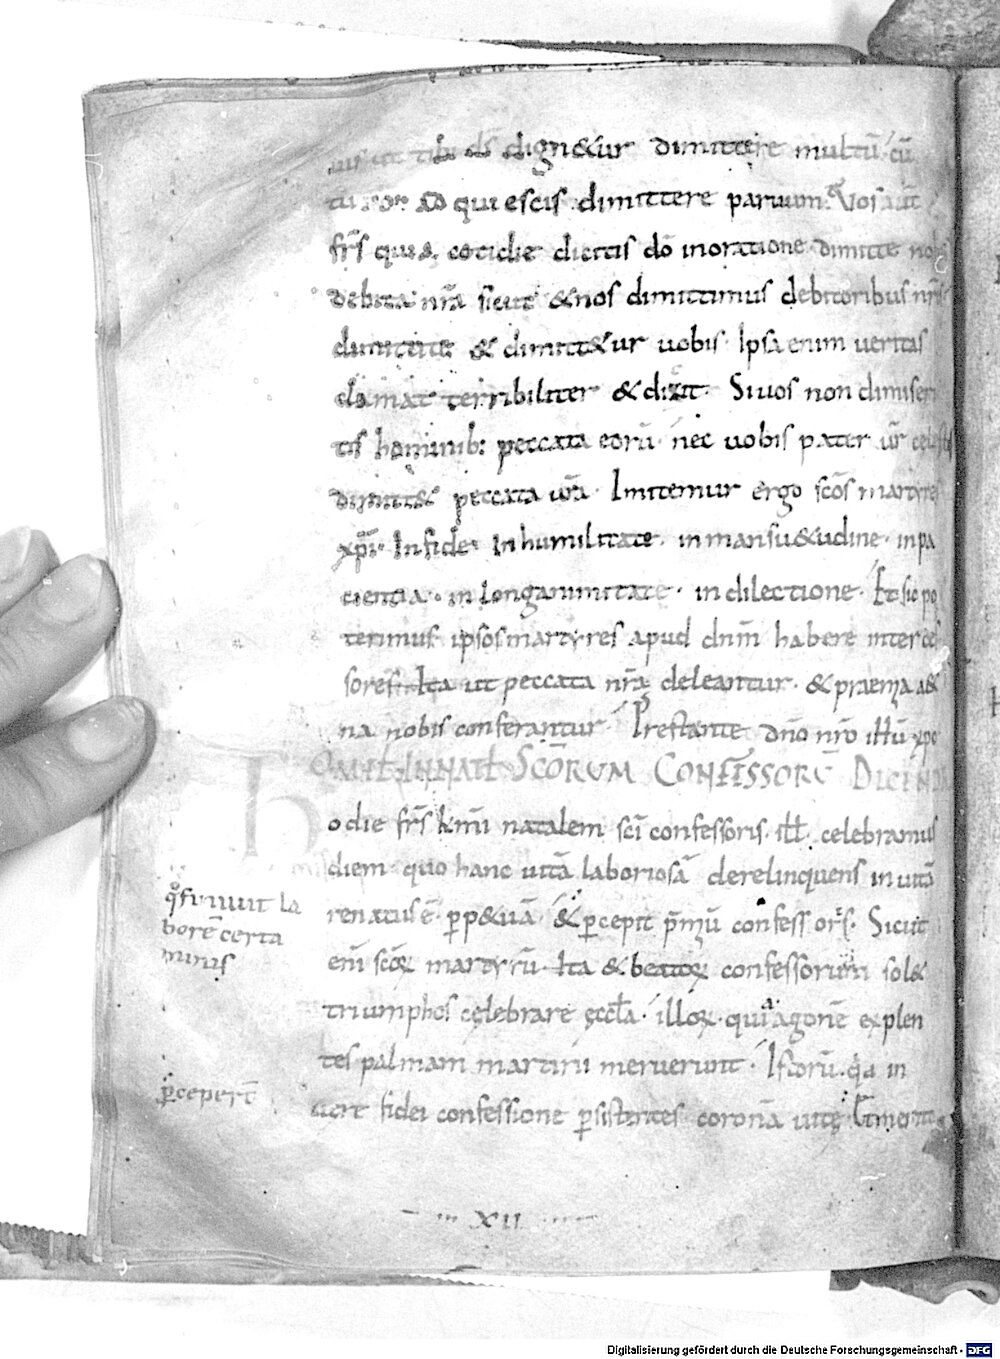 ut tibi ds dign&ur dimittere multū cū
tu non adquiescis dimittere paruum. Vos aūt
frs̄ quia cotidie dicitis dō inoratione dimitte nob
debita nr̄a sicut &nos dimittimus debitoribus nrīs
dimittite & dimitt&ur uobis. Ipsa enim ueritas
clamat terribiliter & dixit. Siuos non dimiseri
tis hominib: peccata eorū nec uobis pater ur̄ celestis
dimitt& peccata ur̄a. Imitemur ergo scōs martyres
xpī. Infide. Inhumilitate. inmansu&udine. inpa
cientia. in longanimitate. in dilectione. Et sic po
terimus ipsos martyres apud dn̄m habere interces
sores. Ita ut peccata nr̄a deleantur. & praemia a&
na nobis conferantur. Prestante dn̄o nr̄o ihū xp̄o
OMIT IN NATT SCŌRVM CONFESSORŪ DICENDA
Hodie frs̄ km̄i natalem scī confessoris. ill. celebramus
diem quo hanc uitā laboriosā derelinquens in uitā
renatus ē perp&uā. & percepit p̄miū confessoris. Sicut
enī scōꝝ martyrū. Ita & beatoꝝ confessorum sol&
triumphos celebrare eccl̄a. illoꝝ. quia agonē explen
tes palmam martirii meruerunt. Istorū. qia in
uera fidei confessione persistentes coronā uitę
qi finiuit la
borē certa
minis
percepert̄
XII
Digitalisierung gefördert durch die Deutsche Forschungsgemeinschaft - DFG